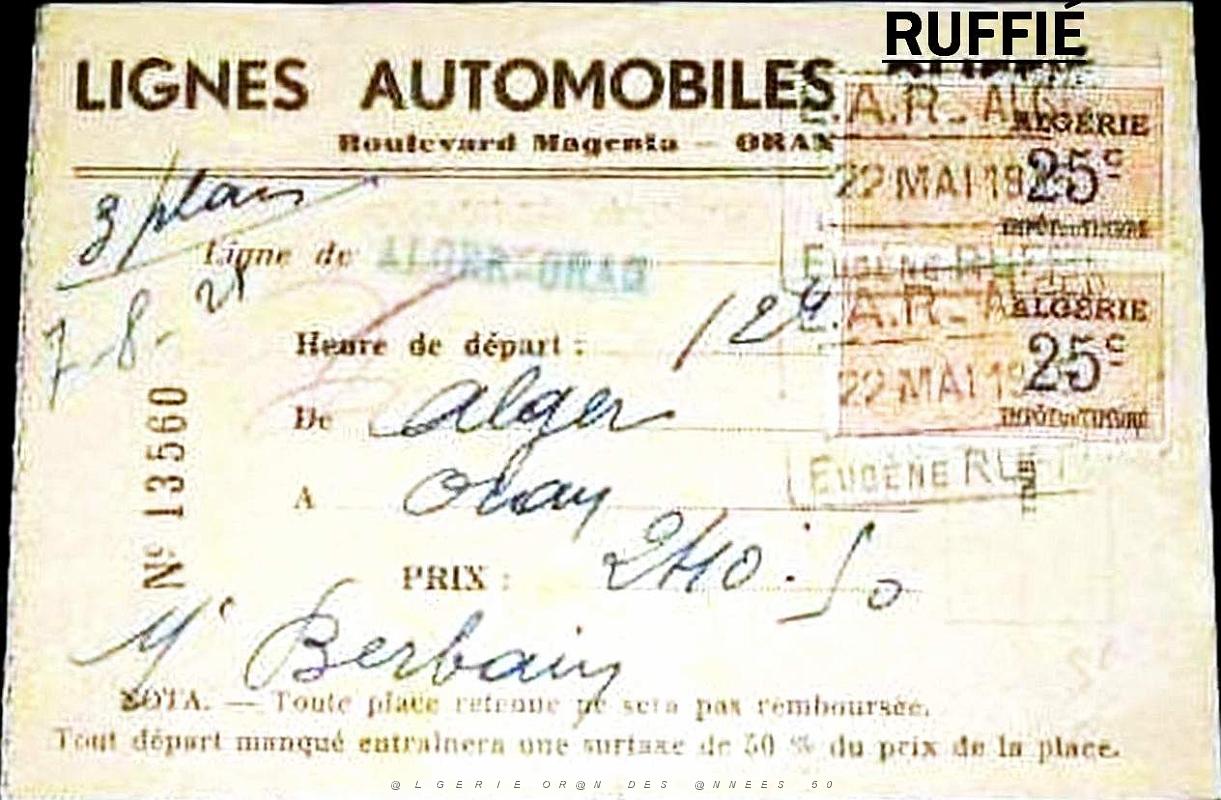 RUFFIÉ
LIGNES AUTOMOBILES
Boulevard Magenta — ORAN
ALGÉRIE
25c
IMPÔT DU TIMBRE
.A.R. - ALG
22 MAI 19
3 places
Ligne de ALGER-ORAN
7-8-
EUGÈNE
Heure de départ : 12h
ALGÉRIE
25c
IMPÔT DU TIMBRE
.A.R. - A
22 MAI 19
De Alger
A Oran
EUGÈNE RUFF
PRIX : 2410.50
No 13560
Mr Berbain
NOTA. — Toute place retenue ne sera pas remboursée.
Tout départ manqué entraînera une surtaxe de 50 % du prix de la place.
@LGERIE OR@N DES @NNEES 50